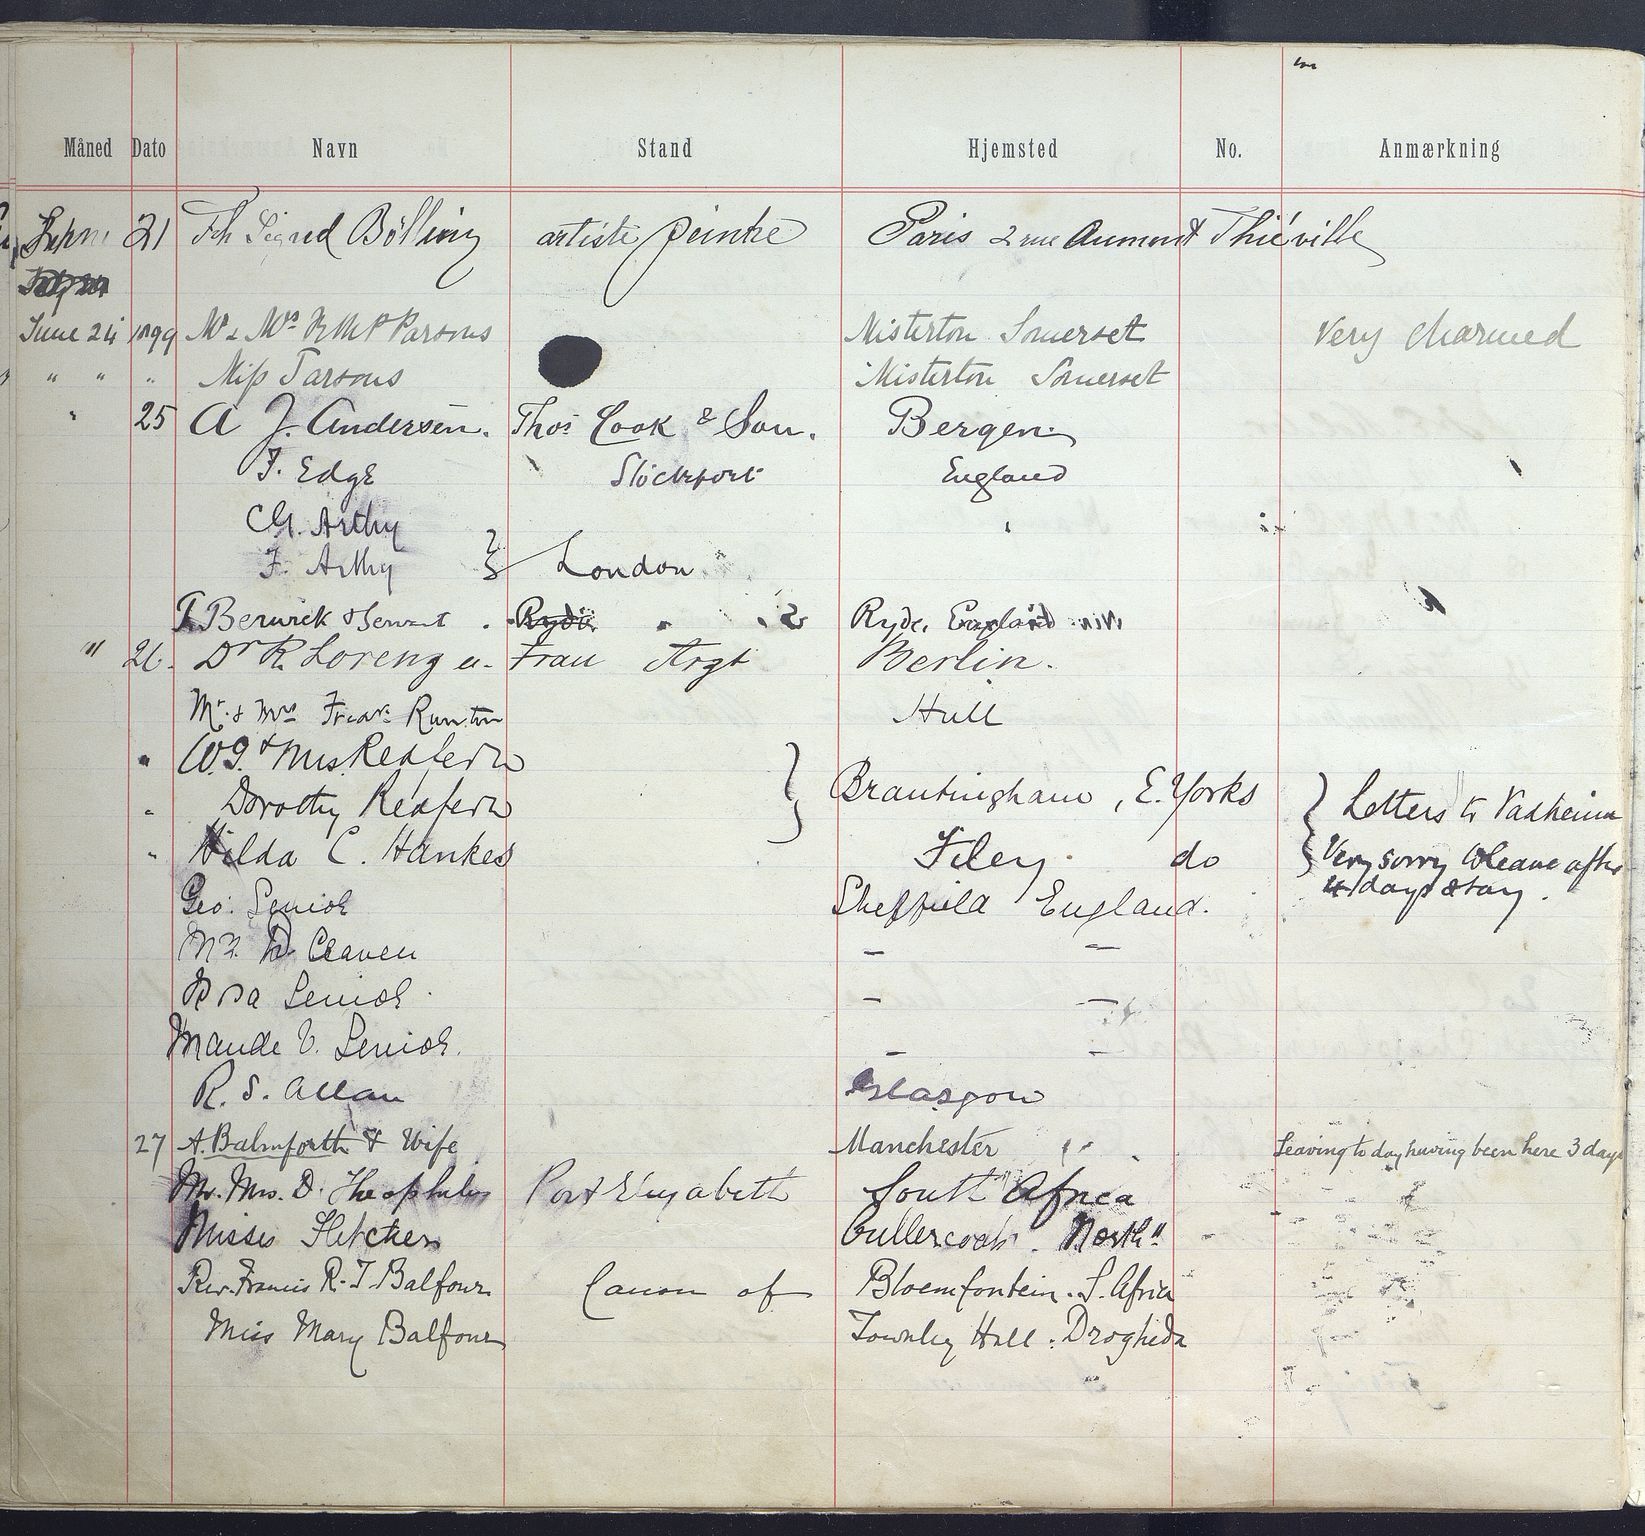 Måned Dato Navn Stand Hjemsted No. Anmærkning
21 Bölling artiste peintre Paris 2 rue Aumont Thiéville
June 24 1899 Mr & Mrs Parsons Misterton Somerset Very charmed
" " " Miss Parsons Misterton Somerset
" 25 A J. Andersen. Thos Cook & Son. Bergen.
F. Edge Stockport England
C.G. Arthy "
F. Arthy } London
Berwick & Servant . Ryde, England
" 26. Dr R. Lorenz u. Frau Arzt Berlin.
Mr. & Mrs Runton Hull
" W.G. & Mrs. Redfern } Brantingham, E. Yorks { Letters to Vadheim
" Dorothy Redfern
" Hilda C. Hankes Filey. do Very sorry to leave after
4 days stay.
Geo. Senior Sheffield England.
Craven — —
Rosa Senior. — —
Maude V. Senior. — —
R. S. Allan Glasgow
27 A. Balmforth & Wife Manchester " Leaving to day having been here 3 days
Mr. Mrs. D. Theophilus Port Elizabeth South Africa
Misses Fletcher Cullercoats. North"
Rev. Francis R. T. Balfour Canon of Bloemfontein. S. Africa
Miss Mary Balfour Townley Hall. Drogheda